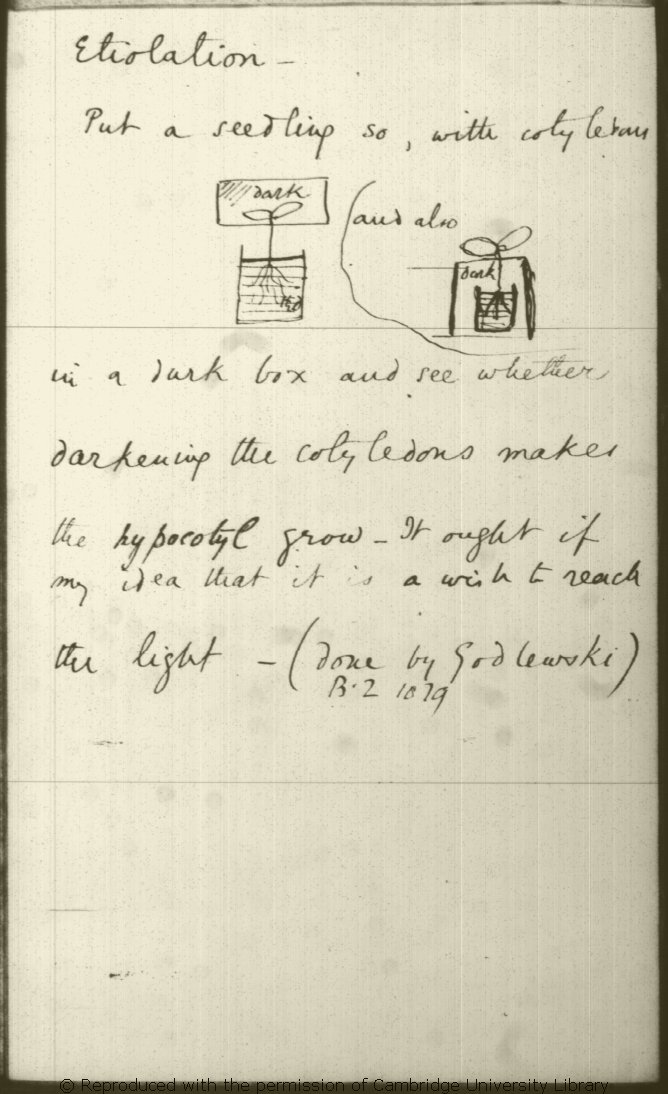 Etiolation —
Put a seedling so, with cotyledons
dark
and also
dark
H2O
in a dark box and see whether
darkening the cotyledons makes
the hypocotyl grow — It ought if
my idea that it is a wish to reach
the light — (done by Godlewski)
B. Z 1879
© Reproduced with the permission of Cambridge University Library